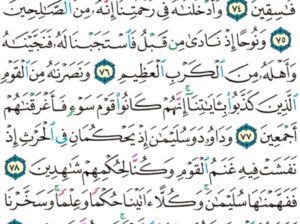 فَٰسِقِينَ ٧٤ وَأَدْخَلْنَٰهُ فِى رَحْمَتِنَآ إِنَّهُۥ مِنَ ٱلصَّٰلِحِينَ
٧٥ وَنُوحًا إِذْ نَادَىٰ مِن قَبْلُ فَٱسْتَجَبْنَا لَهُۥ فَنَجَّيْنَٰهُ
وَأَهْلَهُۥ مِنَ ٱلْكَرْبِ ٱلْعَظِيمِ ٧٦ وَنَصَرْنَٰهُ مِنَ ٱلْقَوْمِ
ٱلَّذِينَ كَذَّبُوا۟ بِـَٔايَٰتِنَآ إِنَّهُمْ كَانُوا۟ قَوْمَ سَوْءٍ فَأَغْرَقْنَٰهُمْ
أَجْمَعِينَ ٧٧ وَدَاوُۥدَ وَسُلَيْمَٰنَ إِذْ يَحْكُمَانِ فِى ٱلْحَرْثِ إِذْ
نَفَشَتْ فِيهِ غَنَمُ ٱلْقَوْمِ وَكُنَّا لِحُكْمِهِمْ شَٰهِدِينَ ٧٨
فَفَهَّمْنَٰهَا سُلَيْمَٰنَ وَكُلًّا ءَاتَيْنَا حُكْمًا وَعِلْمًا وَسَخَّرْنَا